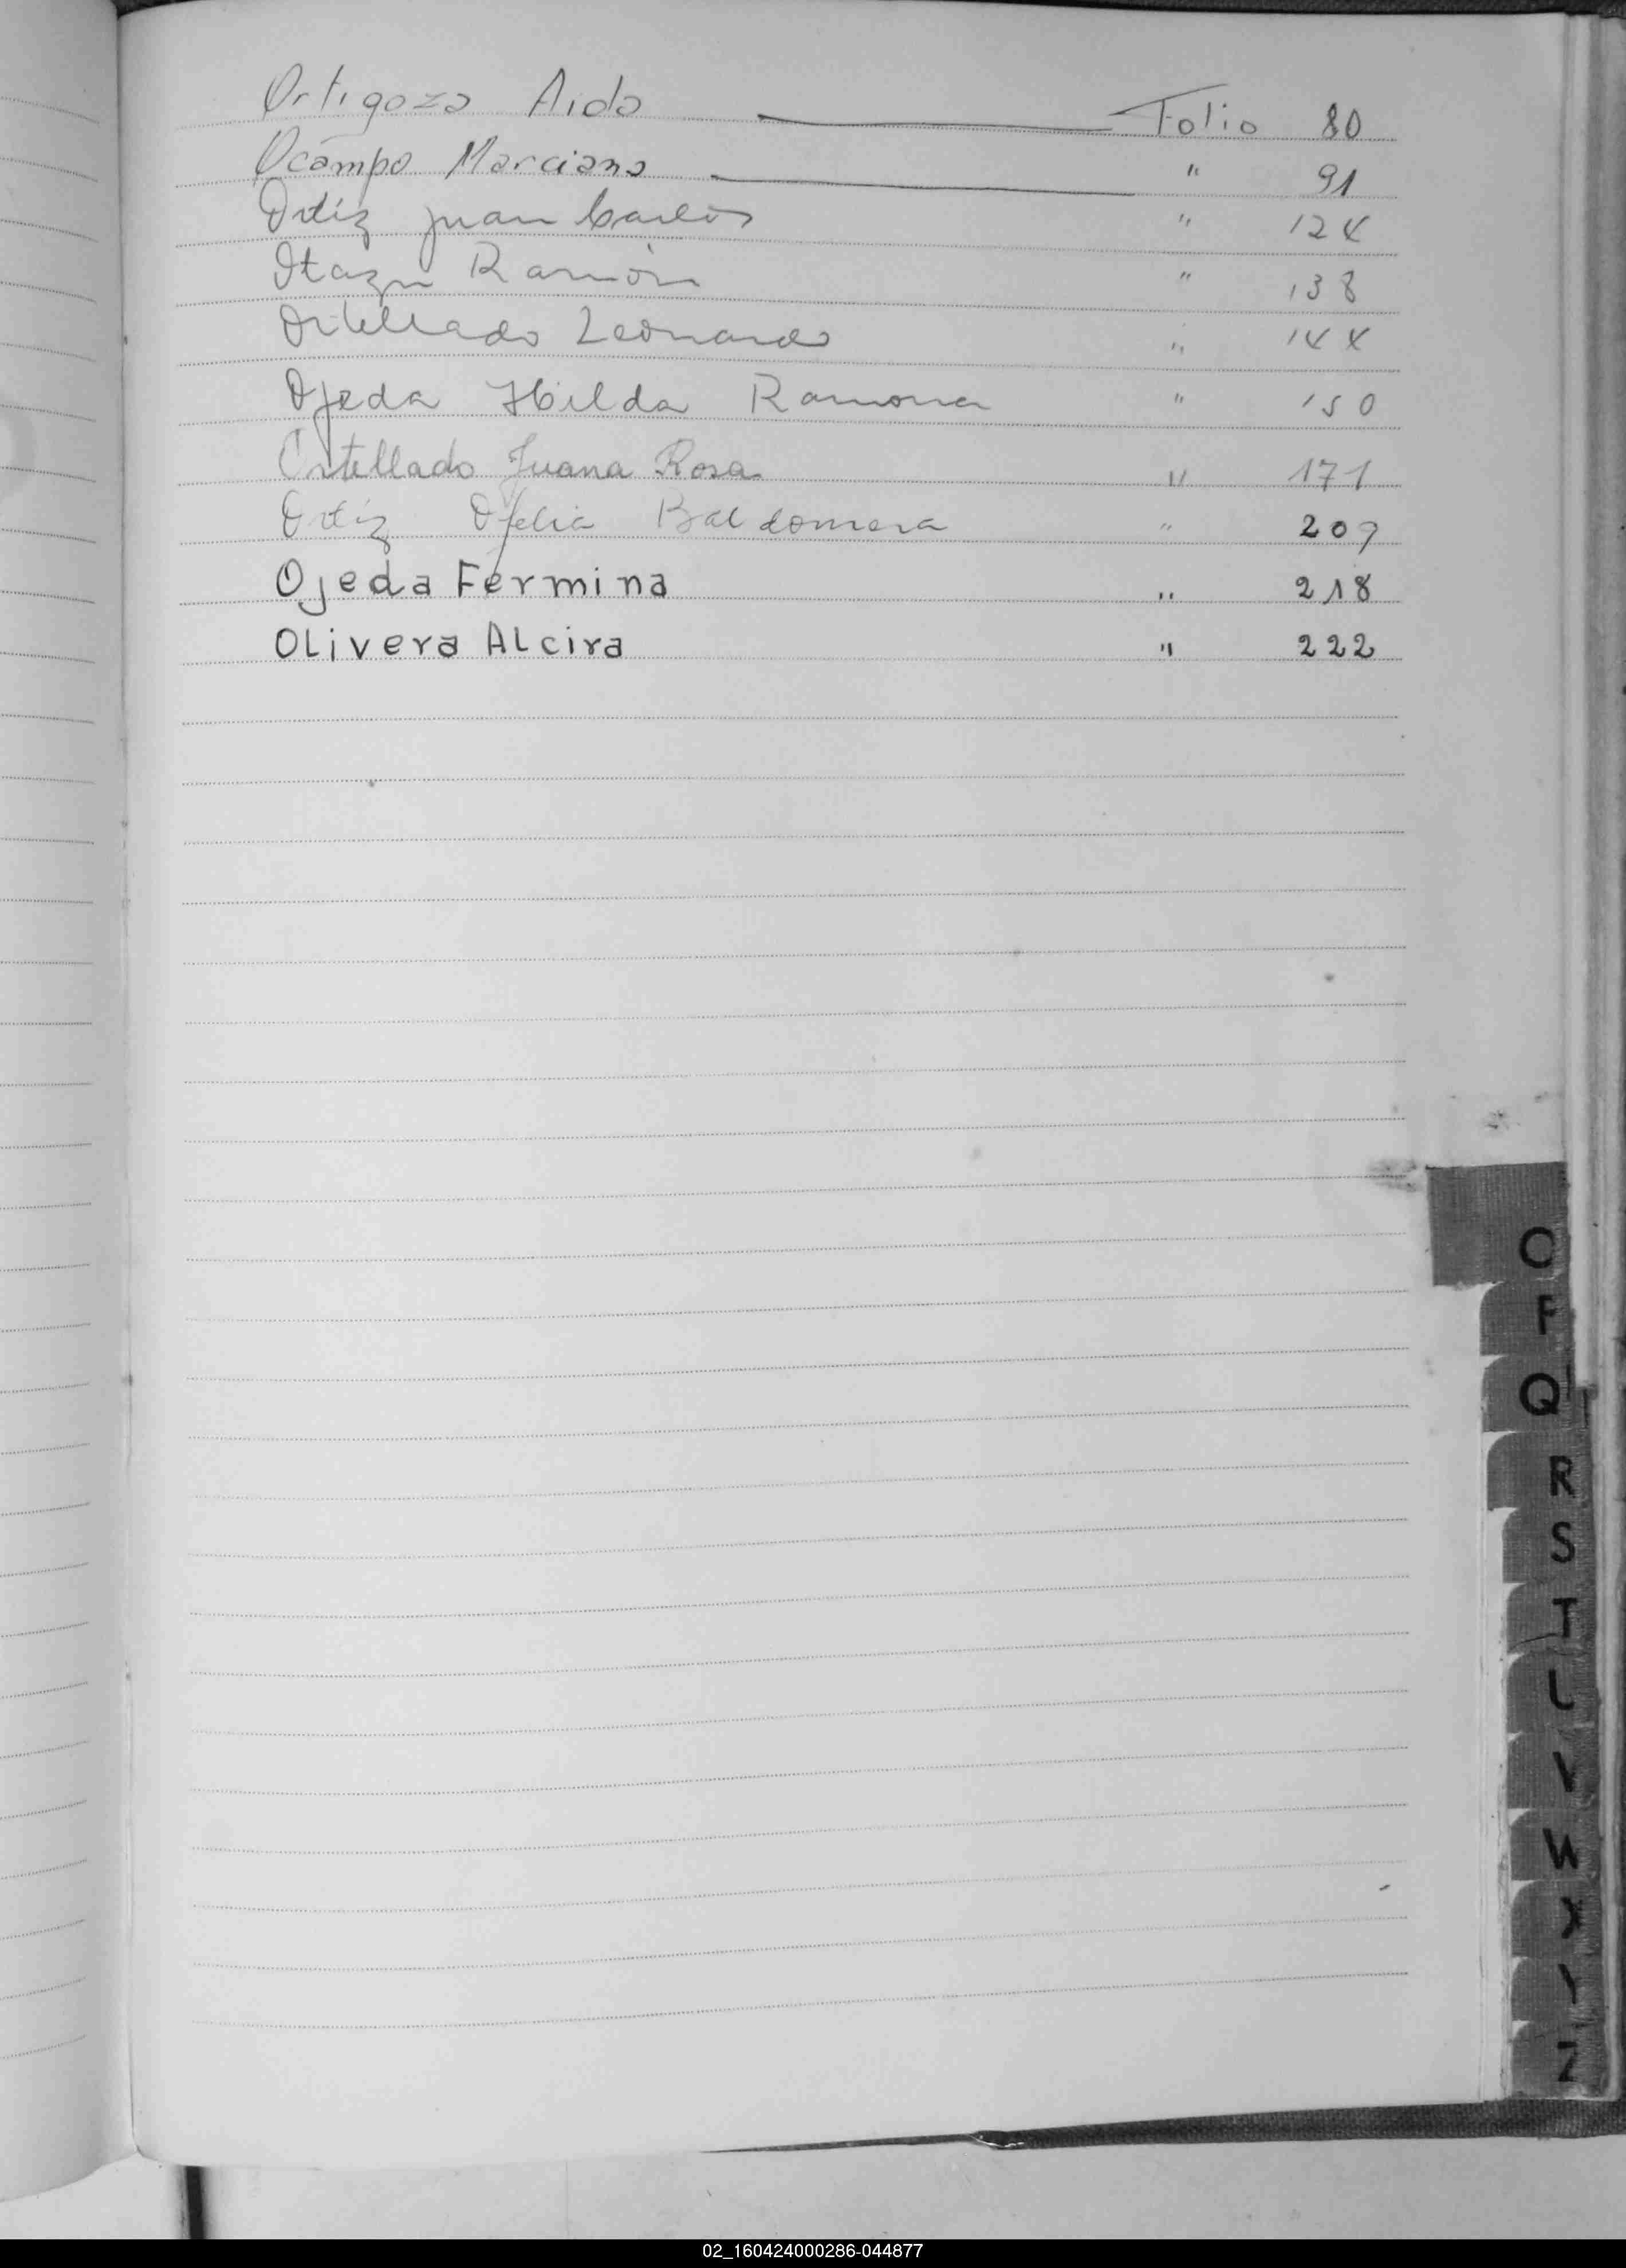 Ortigoza Aida Folio 80
Ocampo Marciano " 91
Ortíz Juan Carlos " 124
Otazu Ramón " 138
Ortellado Leonardo " 144
Ojeda Hilda Ramona " 150
Ortellado Juana Rosa " 171
Ortíz Ofelia Baldomera " 209
Ojeda Fermina " 218
Olivera Alcira " 222
O
P
Q
R
S
T
U
V
W
X
Y
Z
02_160424000286-044877